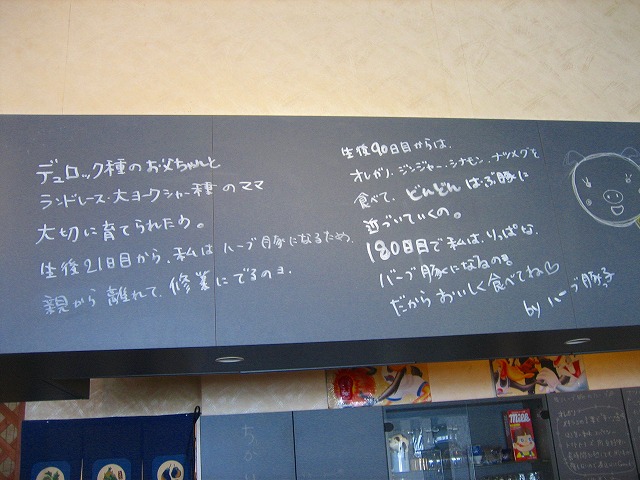 デュロック種のお父ちゃんと
ランドレース・大ヨークシャー種のママ
大切に育てられたわ。
生後21日目から、私はハーブ豚になるため、
親から離れて、修業にでるのョ.
生後90日目からは、
オレガノ、ジンジャー、シナモン、ナツメグを
食べて、どんどんはーぶ豚に
近づいていくの。
180日目で私は、りっぱな、
ハーブ豚になるの。
だからおいしく食べてね♡
by ハーブ豚子
Milk